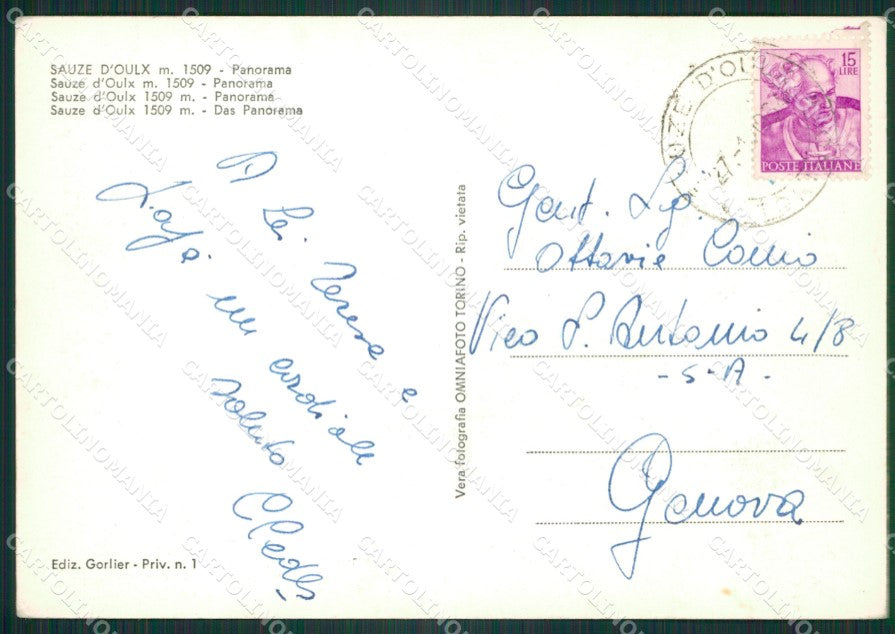 SAUZE D'OULX m. 1509 - Panorama
Sauze d'Oulx m. 1509 - Panorama
Sauze d'Oulx 1509 m. - Panorama
Sauze d'Oulx 1509 m. - Das Panorama
A Lei Teresa e
un cordiale
saluto
Ediz. Gorlier - Priv. n. 1
Vera fotografia OMNIAFOTO TORINO - Rip. vietata
15
LIRE
POSTE ITALIANE
Gent. Sig.
Ottavie Comio
Vico S. Antonio 4/8
- S-A -
Genova
CARTOLINOMANIA